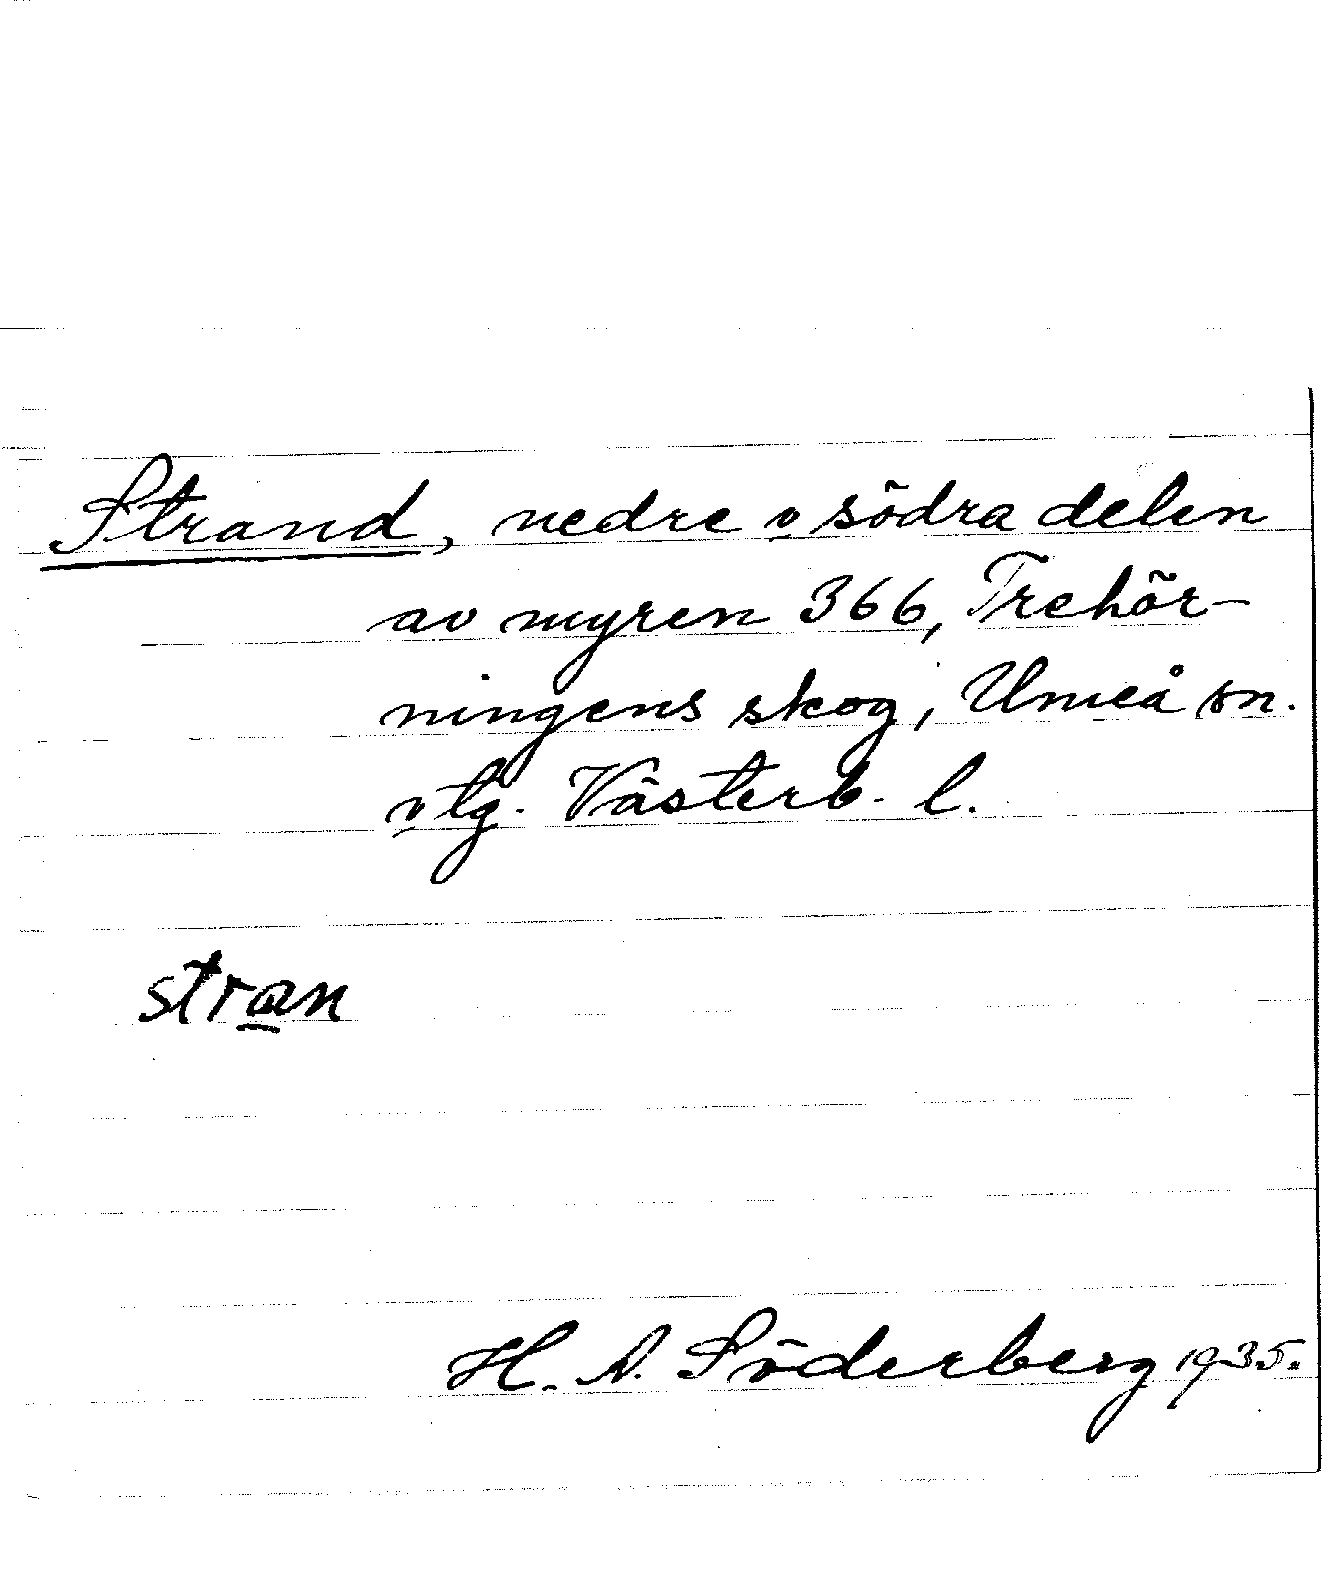 Strand, nedre o södra delen
av myren 366, Trehör-
ningens skog, Umeå sn.
o tg. Västerb. l.
stran
H. A. Söderberg 1935.